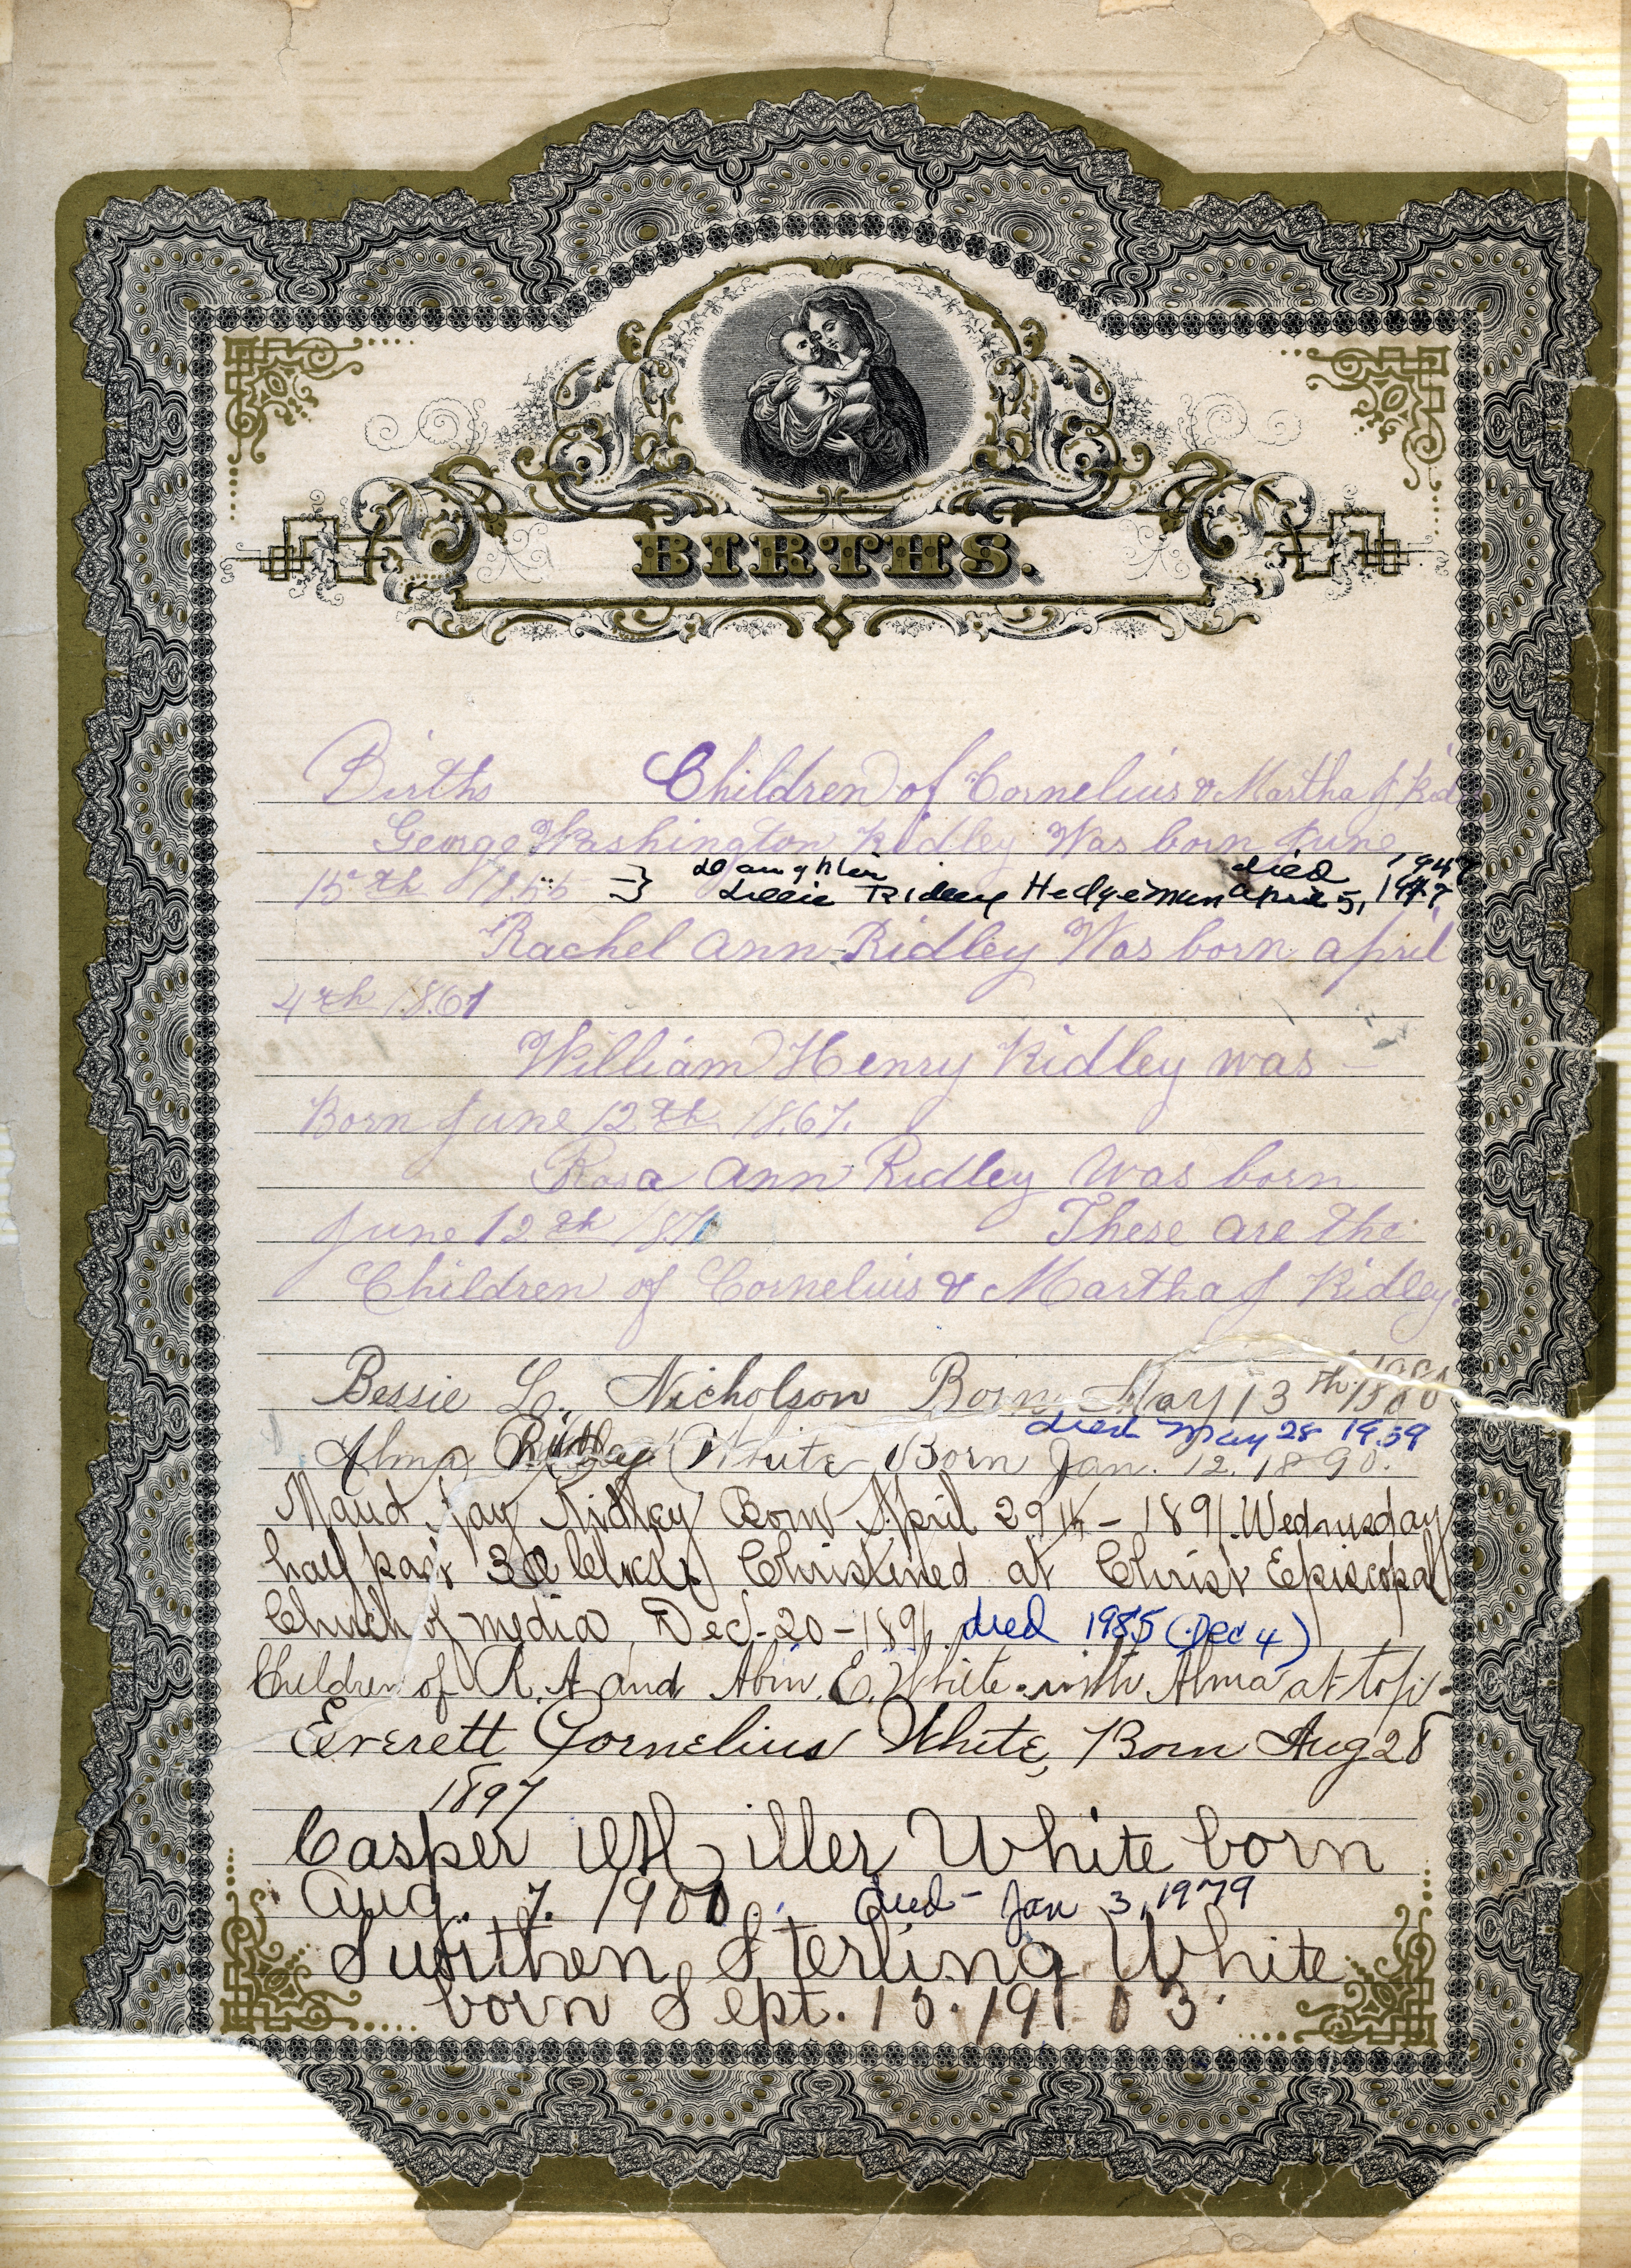 BIRTHS.
Births Children of Cornelius & Martha J Rid
George Washington Ridley Was born June
15th 1855 Daughter died 1947
Lillie Ridley Hedgeman April 5, 1947
Rachel Ann Ridley Was born April
4th 1861
William Henry Ridley was
Born June 12th 1867.
Rosa Ann Ridley Was born
June 12th 1871 These are the
Children of Cornelius & Martha J Ridley.
Bessie L. Nicholson Born May 13th
died May 28 1959
Alma Ridley White Born Jan. 12. 1890.
Maud Fay Ridley Born April 29th - 1891. Wednusday
half past 3 O Clock Christined at Christ Episcopal
Church of media, Dec. 20 - 1891. died 1985 (Dec 4)
Children of R. A and Abin. E. White. with Alma at top.
Everett Cornelius White, Born Aug 28
1897
Casper Miller White born
Aug. 7. 1900. died - Jan 3, 1979
Swithen Sterling White
born Sept. 15. 1903.